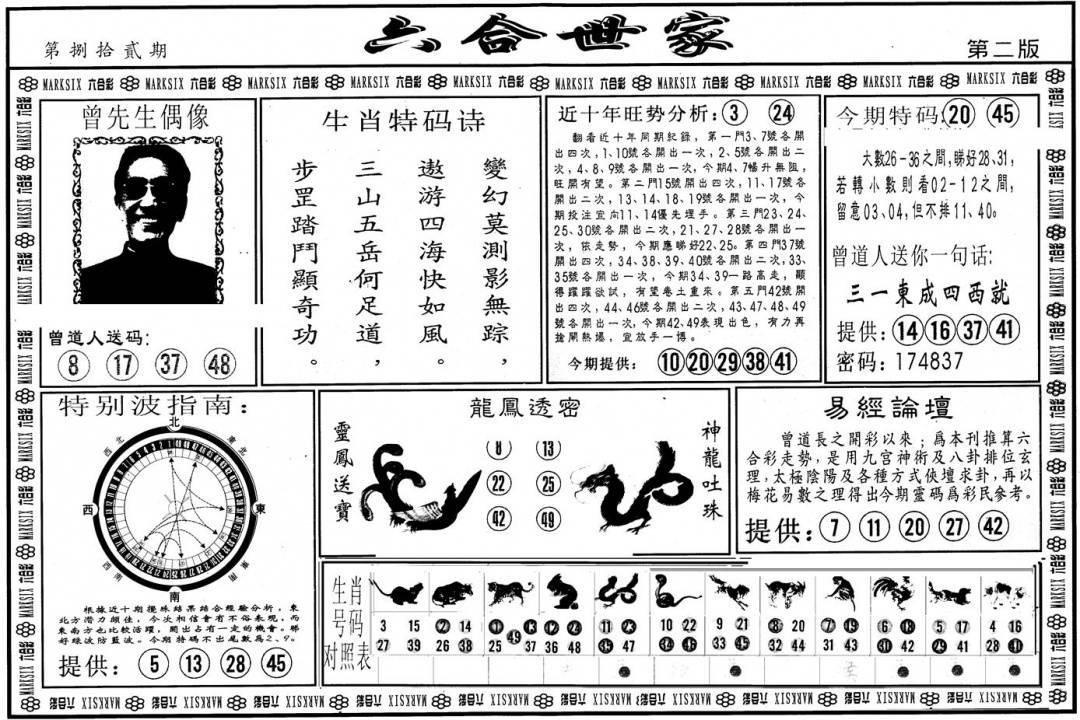 第捌拾贰期
六合世家
第二版
MARKSIX 六合彩 MARKSIX 六合彩 MARKSIX 六合彩 MARKSIX 六合彩 MARKSIX 六合彩 MARKSIX 六合彩 MARKSIX 六合彩 MARKSIX 六合彩 MARKSIX 六合彩 MARKSIX 六合彩
曾先生偶像
曾道人送码:
8 17 37 48
生肖特码诗
變幻莫測影無踪，
遨游四海快如風。
三山五岳何足道，
步罡踏鬥顯奇功。
近十年旺势分析: 3 24
翻看近十年同期紀錄，第一門3、7號各開
出四次，1、10號各開出一次，2、5號各開出二
次，4、8、9號各開出一次，今期4、7暢升無阻，
旺開有望。第二門15號開出四次，11、17號各
開出二次，13、14、18、19號各開出一次，今
期投注宜向11、14優先埋手。第三門23、24、
25、30號各開出二次，21、27、28號各開出一
次，依走勢，今期應睇好22、25。第四門37號
開出四次，34、38、39、40號各開出二次，33、
35號各開出一次，今期34、39一路高走，顯
得躍躍欲試，有望卷土重来。第五門42號開
出四次，44、46號各開出二次，43、47、48、49
號各開出一次，今期42、49表現出色，有力再
搶開熱爆，宜放手一博。
今期提供: 10 20 29 38 41
今期特码: 20 45
大數26-36之間，睇好28、31，
若轉小數則看02-12之間，
留意03、04，但不排11、40。
曾道人送你一句话:
三一東成四西就
提供: 14 16 37 41
密码: 174837
特别波指南:
北
東
南
西
東北
西北
西南
東南
根據近十期攪珠结果结合經驗分析，東
北方潛力頗佳，今次相信會有不俗表現，而
東南方也比較活躍，開出占有一定的機會。睇
好绿波防藍波。今期特碼不出尾數爲2、9。
提供: 5 13 28 45
龍鳳透密
靈鳳送寶
8 13
22 25
42 49
神龍吐珠
易經論壇
曾道長之開彩以來；爲本刊推算六
合彩走勢，是用九宫神術及八卦排位玄
理，太極陰陽及各種方式使壇求卦，再以
梅花易數之理得出今期靈碼爲彩民參考。
提供: 7 11 20 27 42
生肖
号码
对照表
3 15 2 14 1 13 12 24 11 23 10 22 9 21 8 20 7 19 6 18 5 17 4 16
27 39 26 38 25 49 37 36 48 35 47 34 46 33 45 32 44 31 43 30 42 29 41 28 40